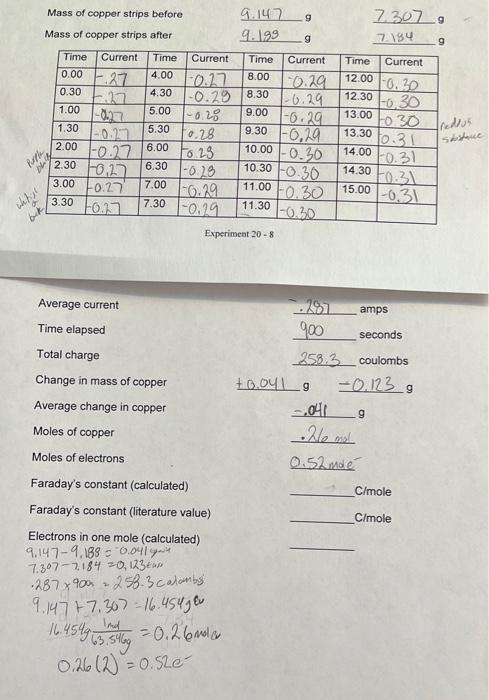 Mass of copper strips before 9.147 g 7.307 g
Mass of copper strips after 9.188 g 7.184 g
Time Current Time Current Time Current Time Current
0.00 -.27 4.00 -0.27 8.00 -0.29 12.00 -0.30
0.30 -.27 4.30 -0.28 8.30 -0.29 12.30 -0.30
1.00 -0.27 5.00 -0.28 9.00 -0.29 13.00 -0.30
1.30 -0.27 5.30 -0.28 9.30 -0.29 13.30 -0.31
2.00 -0.27 6.00 -0.28 10.00 -0.30 14.00 -0.31
2.30 -0.27 6.30 -0.28 10.30 -0.30 14.30 -0.31
3.00 -0.27 7.00 -0.29 11.00 -0.30 15.00 -0.31
3.30 -0.27 7.30 -0.29 11.30 -0.30
Experiment 20 - 8
Average current -.287 amps
Time elapsed 900 seconds
Total charge 258.3 coulombs
Change in mass of copper +0.041 g -0.123 g
Average change in copper -.041 g
Moles of copper .26 mol
Moles of electrons 0.52 mole-
Faraday's constant (calculated) C/mole
Faraday's constant (literature value) C/mole
Electrons in one mole (calculated)
9.147-9.188 = -0.041
7.307-7.184 = 0.123
.287 x 900 = 258.3 coulombs
9.147 + 7.307 = 16.454g Cu
16.454g 1mol / 63.546g = 0.26 mol
0.26 (2) = 0.52e-